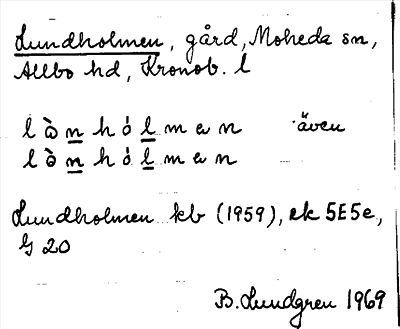 Lundholmen, gård, Moheda sn,
Allbo hd, Kronob. l
l ò n h ó l m e n även
l ò n h ó l m e n
Lundholmen kb (1959), ek 5E5e,
G 20
B. Lundgren 1969